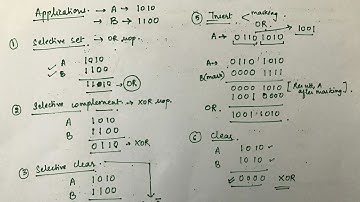 Applications → A → 1010
→ B → 1100
① Selective set → OR μop.
A 1010
B 1100
1110 → OR
② Selective complement → XOR μop.
A 1010
B 1100
0110 → XOR
③ Selective clear
A 1010
B 1100
⑤ Insert → marking
OR
A → 0110 1010 → 1001
A → 0110 1010
B(mask) 0000 1111
0000 1010 [Result, A after masking]
1001 0000
OR 1001 1010
⑥ Clear
A 1010
B 1010
0000 XOR